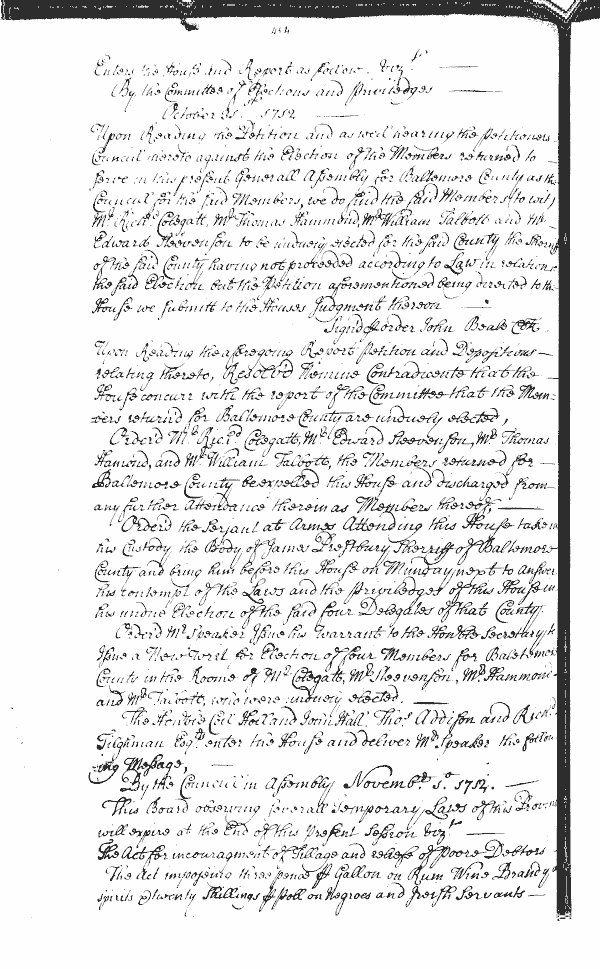 Enters the House and Report as follow. &vizt
By the Committee of Elections and Priviledges
October 31 1712
Upon Reading the Petition and as well hearing the Petitioners
Council thereto against the Election of the Members returned to
serve in this present Generall Assembly for Baltemore County as the
Council for the said Members, we do find the said Members, to wit,
Mr. Richd. Colegatt, Mr. Thomas Hammond, Mr. William Talbott and Mr.
Edward Steevenson to be unduely elected for the said County the Sheriff
of the said County having not proceeded according to Law in relation
the said Election but the Petition aforementioned being directed to the
House we submitt to the Houses Judgment thereon
Signd p order John Beale Clk.
Upon Reading the aforegoing Report Petition and Depositions
relating thereto, Resolv'd Nemine Contradicente that the
House concurr with the report of the Committee that the Mem-
bers return'd for Baltemore County are unduely elected,
Orderd Mr. Richd Colegatt, Mr. Edward Steevenson, Mr. Thomas
Hamond, and Mr. William Talbott, the Members returned for
Baltemore County be expelled this House and discharged from
any further Attendance therein as Members thereof,
Orderd the Serjant at Armes Attending this House take in
his Custody the Body of James Presbury Sherriff of Baltemore
County and bring him before this House on Munday next to Answer
his contempt of the Laws and the Priviledges of this House in
his undue Election of the said four Delegates of that County.
Orderd Mr. Speaker Issue his Warrant to the Honble Secretary to
Issue a New Writ for Election of four Members for Baltemore
County in the Roome of Mr. Colegatt, Mr. Steevenson, Mr. Hammond
and Mr. Talbott, who were unduely elected.
The Honble Coll Holland John Hall, Thos. Addison and Richd.
Tilghman Esqrs. enter the House and deliver Mr. Speaker the follow
ing Message,
By the Council in Assembly Novembr. 1o. 1712.
This Board observing severall Temporary Laws of this Province
will expire at the End of this Present Session &vizt
The Act for incouragment of Tillage and reliefe of poore Debtors
The Act imposeing three pence p Gallon on Rum Wine Brandy
spirits & twenty Shillings p Poll on Negroes and Irish Servants